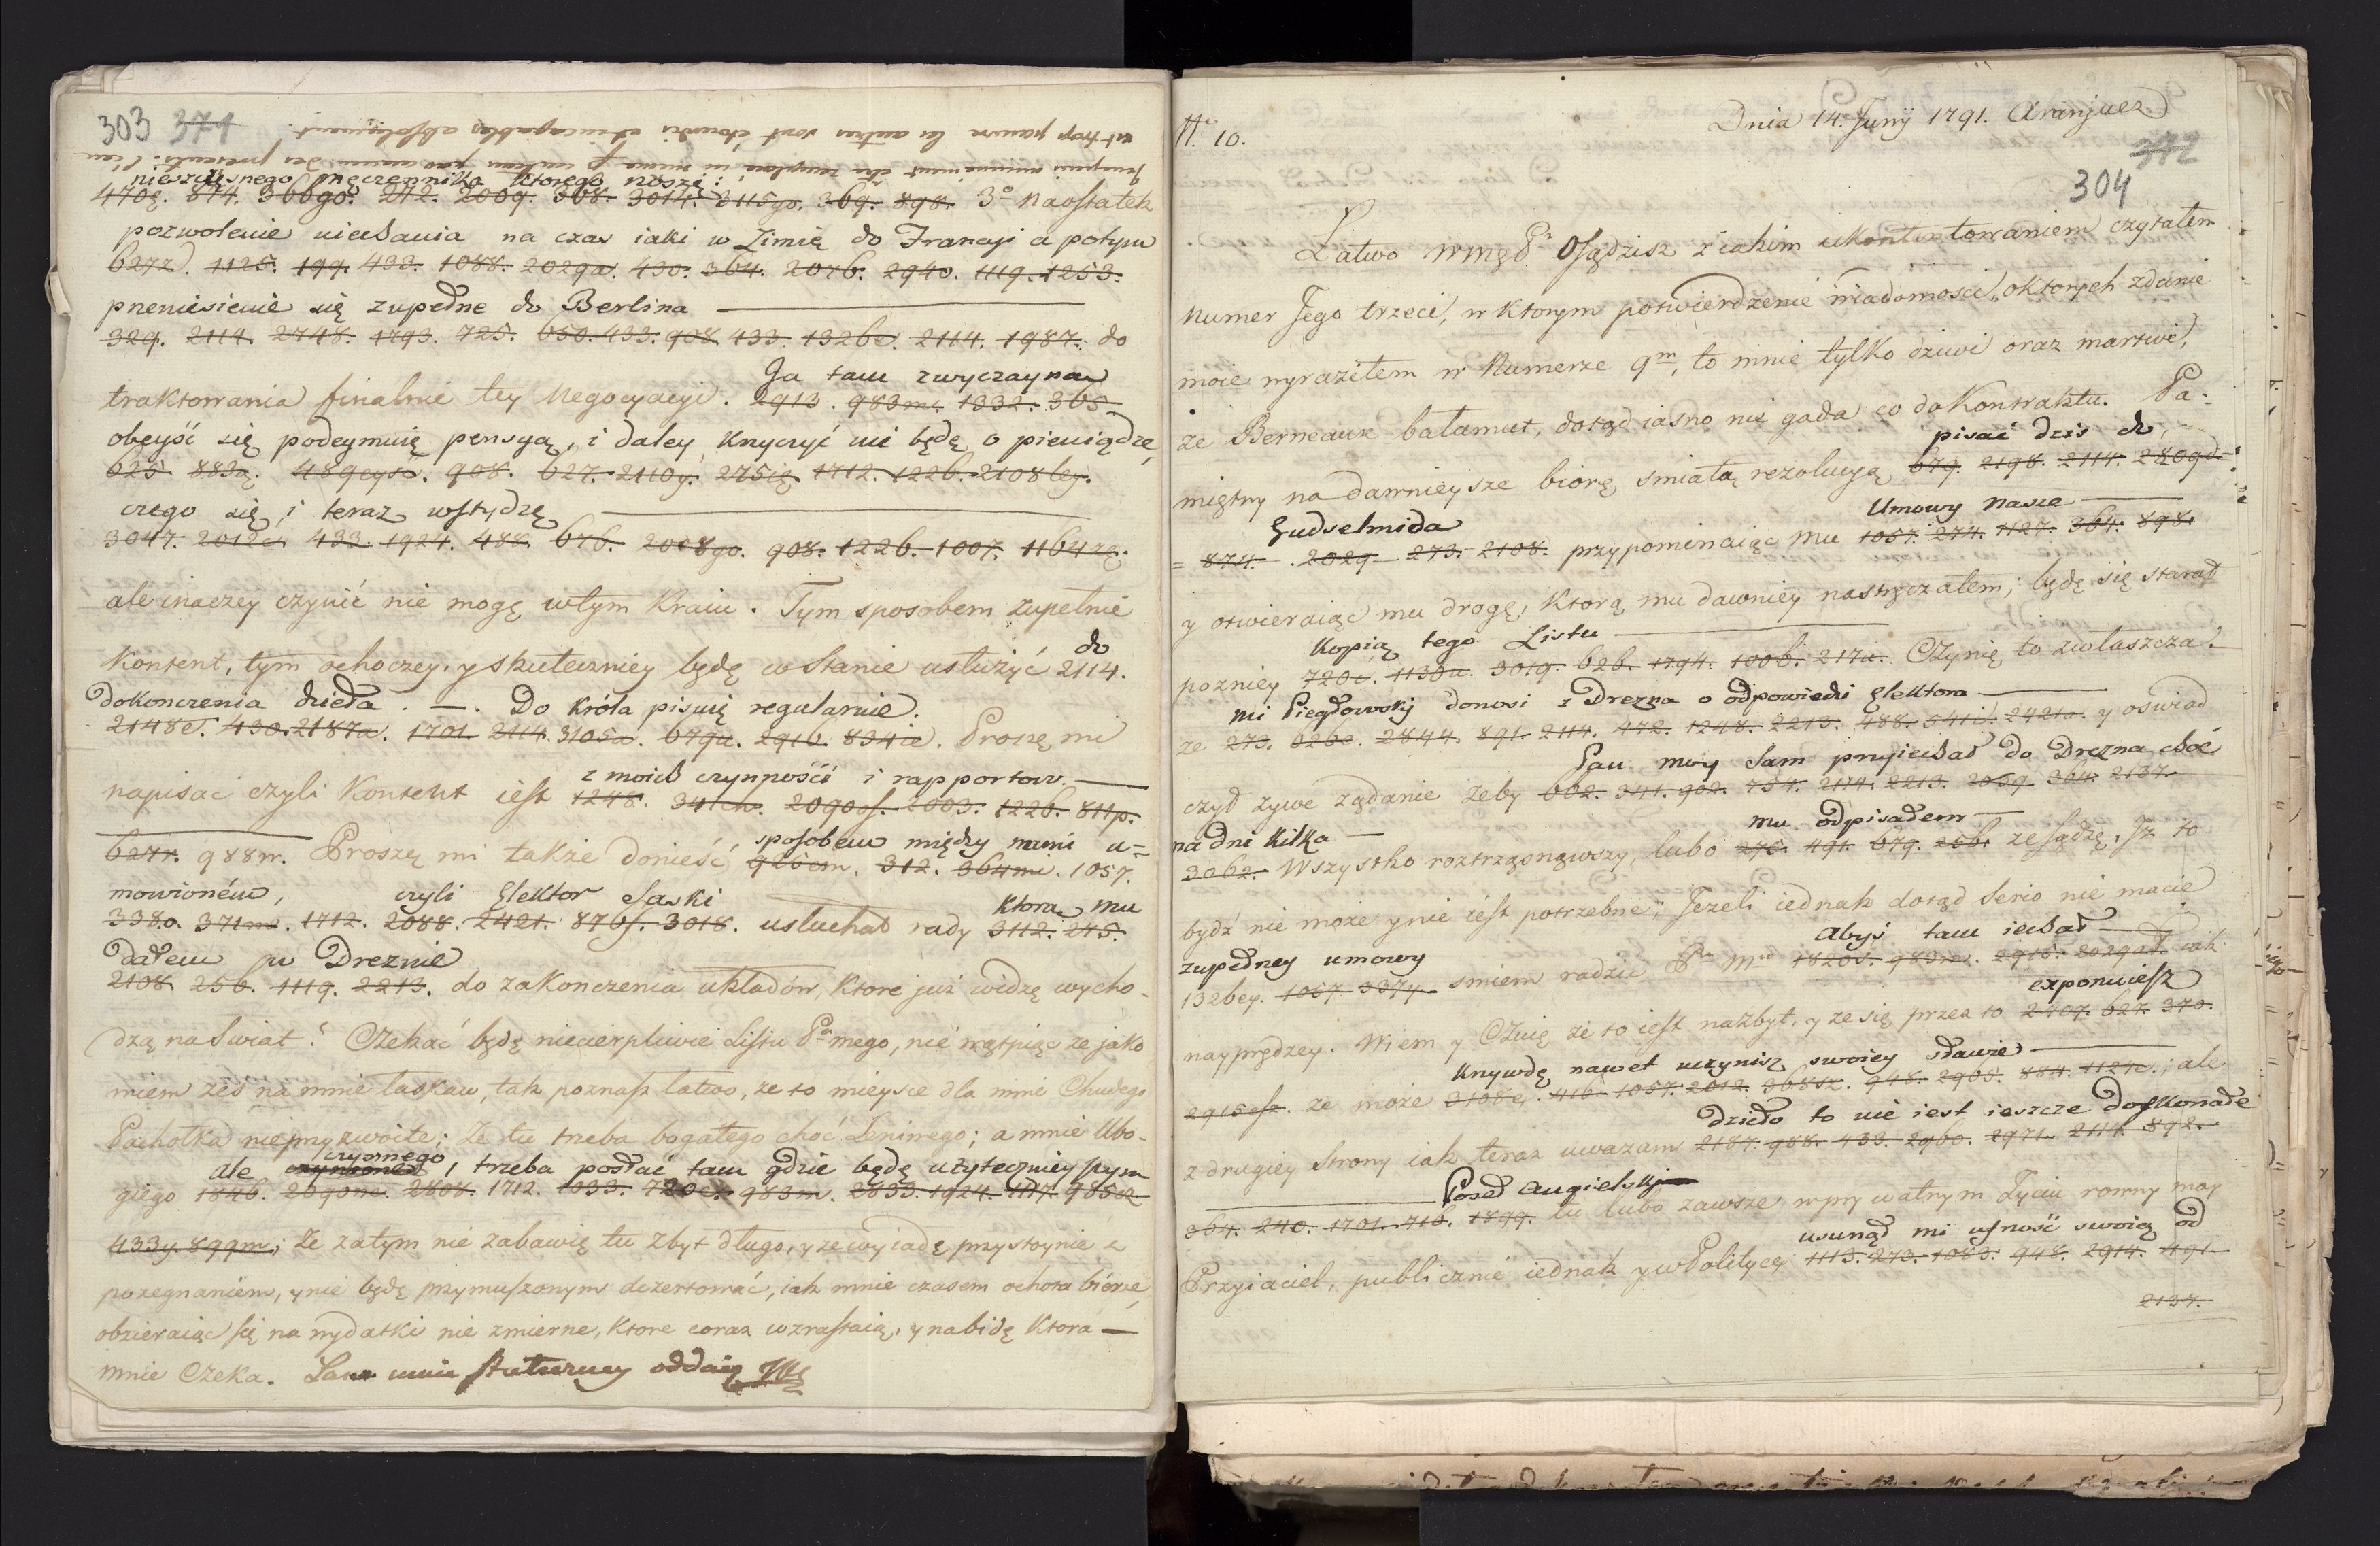 303 371
est trop pauvre les autres sont etourdis et incapables absolument.
nieszczęsnego męczennika ktorego noszę:
470ę. 874. 366go. 272. 2009. 368. 3014. 3115go. 369. 898. 3º Naostatek
pozwolenie niechania na czas iaki w Zimię do Francyi a potym
627z. 1125. 199. 433. 1088. 2029a. 430. 364. 2076. 2940. 1119. 1253.
przeniesienie się zupełne do Berlina
329. 2114. 2748. 1793. 725. 650. 433. 908. 433. 132be. 2114. 1987. do
Ja tam zwyczayną
traktowania finalnie tey Negocyacyi. 2913. 983m. 1332. 365
obeyść się podeymuię pensyą, i daley Krzyczyć nie będę o pieniądze,
625. 883ą. 489cyso. 908. 627. 2110y. 275ię. 1712. 1226. 2108ley.
czego się i teraz wstydzę
3047. 2012c. 433. 1924. 488. 676. 2008go. 908. 1226. 1007. 1164zę.
ale inaczey czynić nie mogę w tym Kraiu. Tym sposobem zupełnie
do
Kontent, tym ochoczey, y skuteczniey będę w Stanie usłużyć 2114.
dokonczenia dzieła. —. Do Króla pisuię regularnie.
2148e. 430. 2187a. 1701. 2114. 3105a. 679u. 2916. 834ie. Proszę mi
z moich czynności i rapportow.
napisać czyli Kontent iest 1248. 341ch. 2090s. 2003. 1226. 811p.
sposobem między nami u=
627r. 988w. Proszę mi także donieść, 926em. 312. 364mi. 1057.
mowioném, czyli Elektor Saski ktorą mu
3380. 371m. 1712. 2088. 2421. 876s. 3018. usłuchał rady 3112. 245.
Dałem w Dreznie
2108. 256. 1119. 2213. do zakonczenia układów, Ktore już widzę wycho-
dzą na Swiat? Czekać będę niecierpliwie Listu Pa mego, nie wątpiąc ze jako
wiem ześ na mnie łaskaw, tak poznasz łatwo, ze to mieysce dla mnie Chudego
Pachołka nieprzyzwoite; Ze tu trzeba bogatego choć Leniwego; a mnie Ubo-
czynnego
ale, trzeba posłać tam gdzie będę użyteczniey szym
giego 1846. 2090ne. 2808. 1712. 1033. 720e. 983m. 2833. 1924. 1117. 985cz
433y. 899m; Ze zatym nie zabawię tu zbyt długo, y ze wyiadę przystoynie z
pozegnaniem, y nie będę przymuszonym dezertować, iak mnie czasem ochota bierze,
obzieraiąc się na wydatki nie zmierne, Ktore coraz wzrastaią, y na bidę Ktora —
mnie Czeka.
Nº 10.
Dnia 14. Junÿ 1791. Aranjuez
372
304
Łatwo WMgP Osądzisz z iakim ukontentowaniem czytałem
Numer Jego trzeci, w Ktorym potwierdzenie wiadomości, o ktorych zdanie
moie wyraziłem w Numerze 9m, to mnie tylko dziwi oraz martwi,
ze Berneaux bałamut, dotąd iasno nie gada co do Kontraktu. Pa-
pisać dziś do
miętny na dawnieysze biorę smiałą rezolucyą 679. 2198. 2114. 2809d=
Gudschmida Umowy nasze
= 874. 2029. 273. 2108. przypominaiąc mu 1057. 274. 1127. 364. 898.
y otwieraiąc mu drogę, Ktorą mu dawniey nastręczałem; będę się starał
Kopią tego Listu
pozniey 720c. 1130a. 3019. 626. 1794. 1006. 217u. Czynię to zwłaszcza
mi Piegłowsky donosi z Drezna o odpowiedzi Elektora
ze 273. 626c. 2844. 891. 2114. 472. 1248. 2213. 488. 541i. 2421a. y oswiad
Pan moy Sam przyiechał do Drezna choć
czył zywe ządanie zeby 602. 341. 902. 754. 2114. 2213. 2059. 364. 2137.
na dni Kilka mu odpisałem
3062. Wszystko roztrząsnąwszy, lubo 275. 491. 679. 256. ze sądzę, Iz to
bydź nie może y nie iest potrzebne; Jezeli iednak dotąd Serio nie macie
zupełney umowy abyś tam iechał
132bey. 1057. 337y. smiem radzić Pu Mu 1820s. 983m. 2915. 2029ał. iak
exponuiesz
nayprędzey. Wiem y Czuię ze to iest nazbyt, y ze się przez to 2407. 627. 370.
Krzywdę nawet uczynisz swoiey sławie
2915esz. ze może 3108ę. 416. 1057. 2012. 368sz. 948. 2905. 884. 1124e.; ale
dzieło to nie iest ieszcze doskonałe
z drugiey Strony iak teraz uwazam 2187. 988. 433. 2960. 2971. 2114. 892.
Poseł Angielskj
364. 240. 1701. 716. 1899. tu lubo zawsze w prywatnym Życiu rowny moy
usunął mi ufność swoią od
Przyiaciel, publicznie iednak y w Polityce 1113. 273. 1083. 948. 2914. 491.
2137.